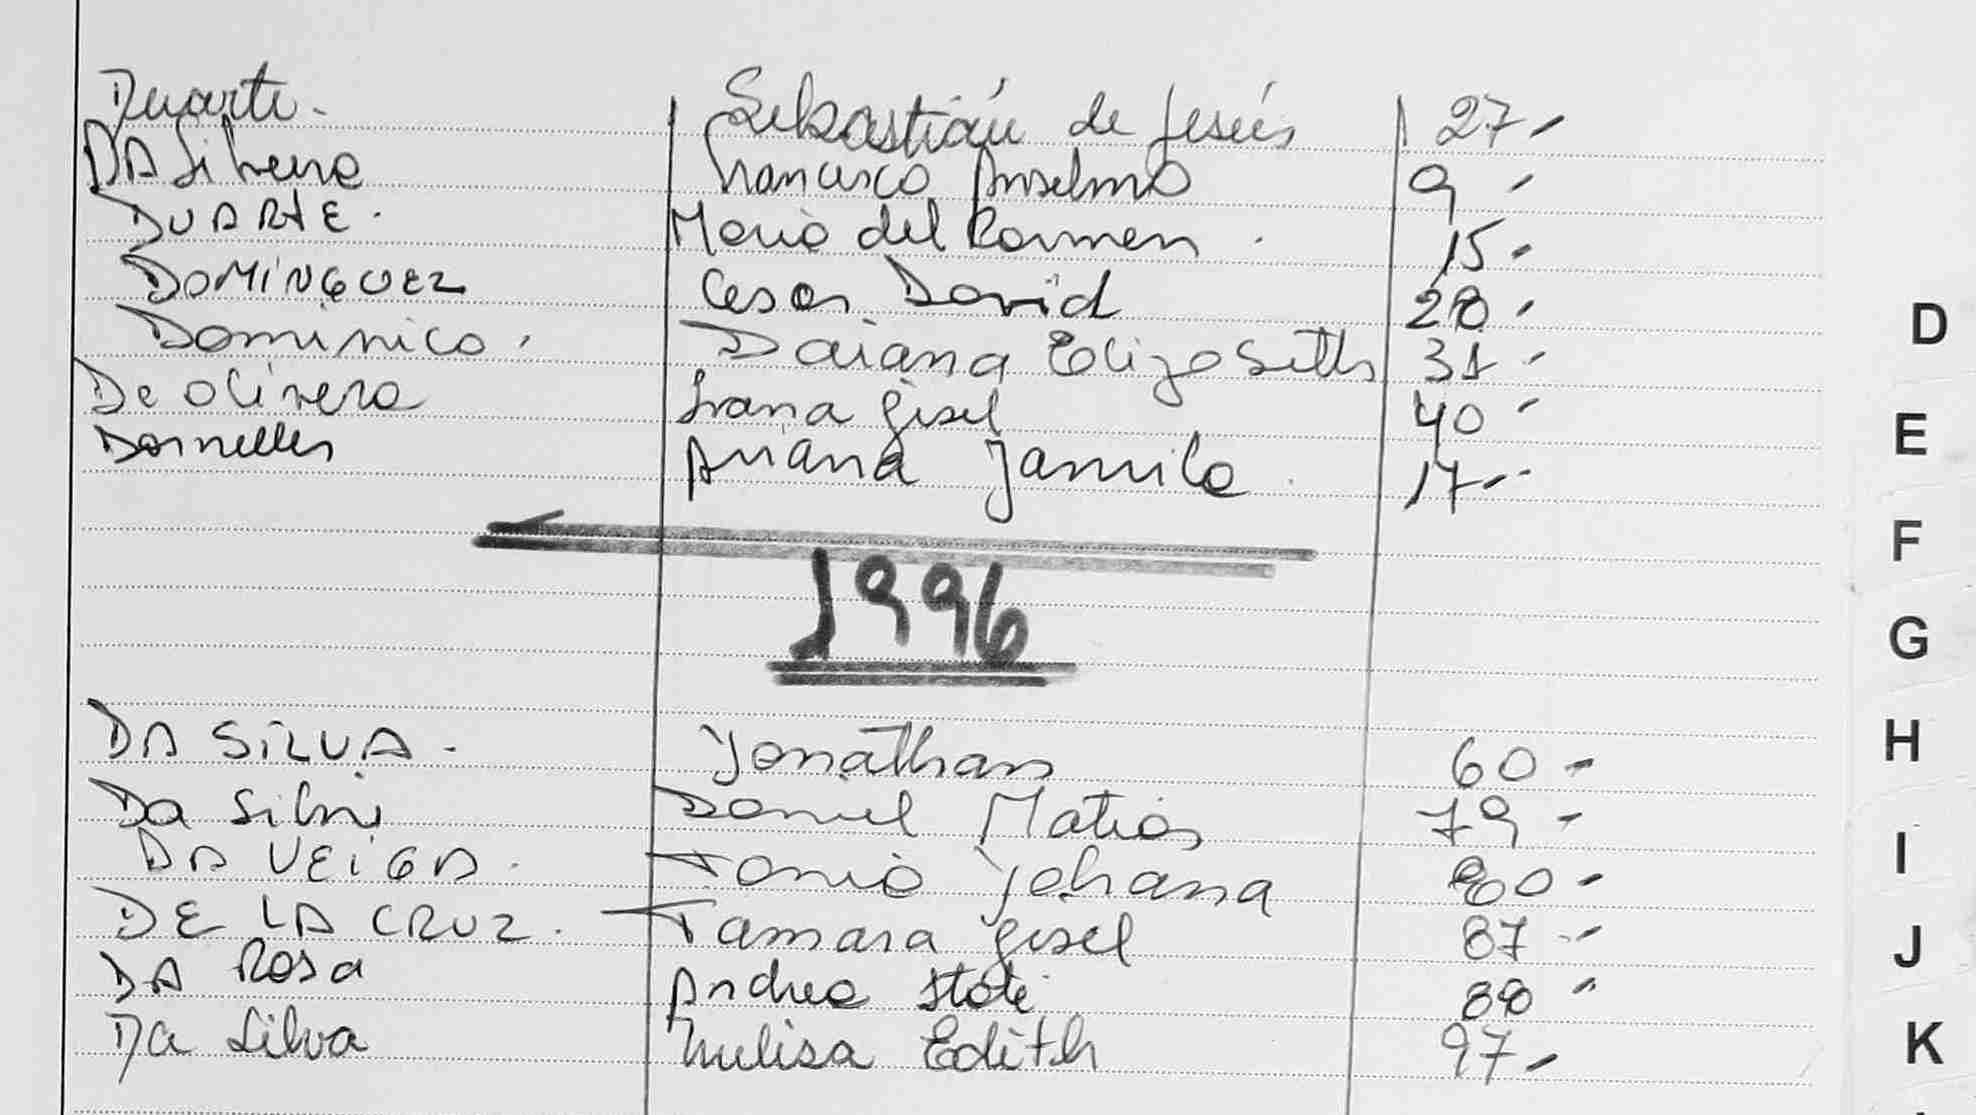 Duarte. Sebastián de Jesús 27
DA Silveira Francisco Anselmo 9
DUARTE. Maria del Carmen. 15
DOMINGUEZ Cesar David 28
Dominico. Daiana Elizabeth 31
De Olivera Ivana Gisel 40
Dornelles Ariana Jamila. 17
1996
DA SILVA. Jonathan 60
Da Silva Daniel Matias 79
DA VEIGA. Tania Johana 80
DE LA CRUZ. Tamara Gisel 87
DA Rosa Andrea 88
Da Silva Edith 97
D
E
F
G
H
I
J
K